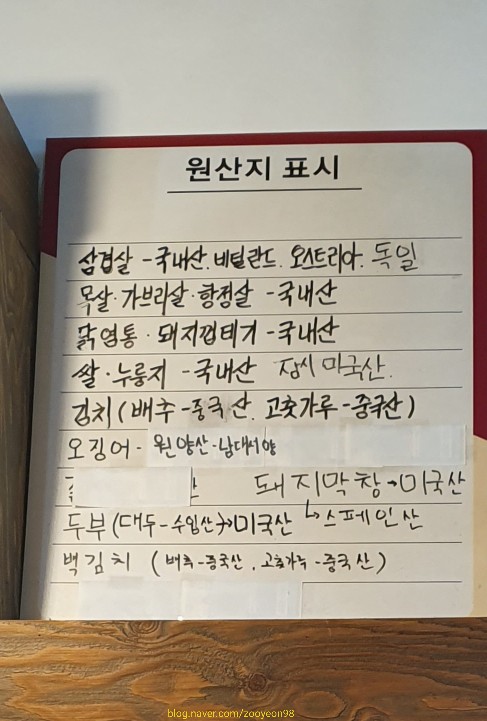 원산지 표시
삼겹살 - 국내산. 비틸란드. 오스트리아. 독일
목살·가브리살·항정살 - 국내산
닭염통·돼지껍데기 - 국내산
쌀·누룽지 - 국내산 잡시미국산.
김치(배추 - 중국산. 고춧가루 - 중국산)
오징어 - 원양산 - 남대서양
돼지막창→미국산
두부(대두 - 수입산)→미국산 ↳스페인산
백김치 (배추 - 중국산. 고춧가루 - 중국산)
blog.naver.com/zooyeon98